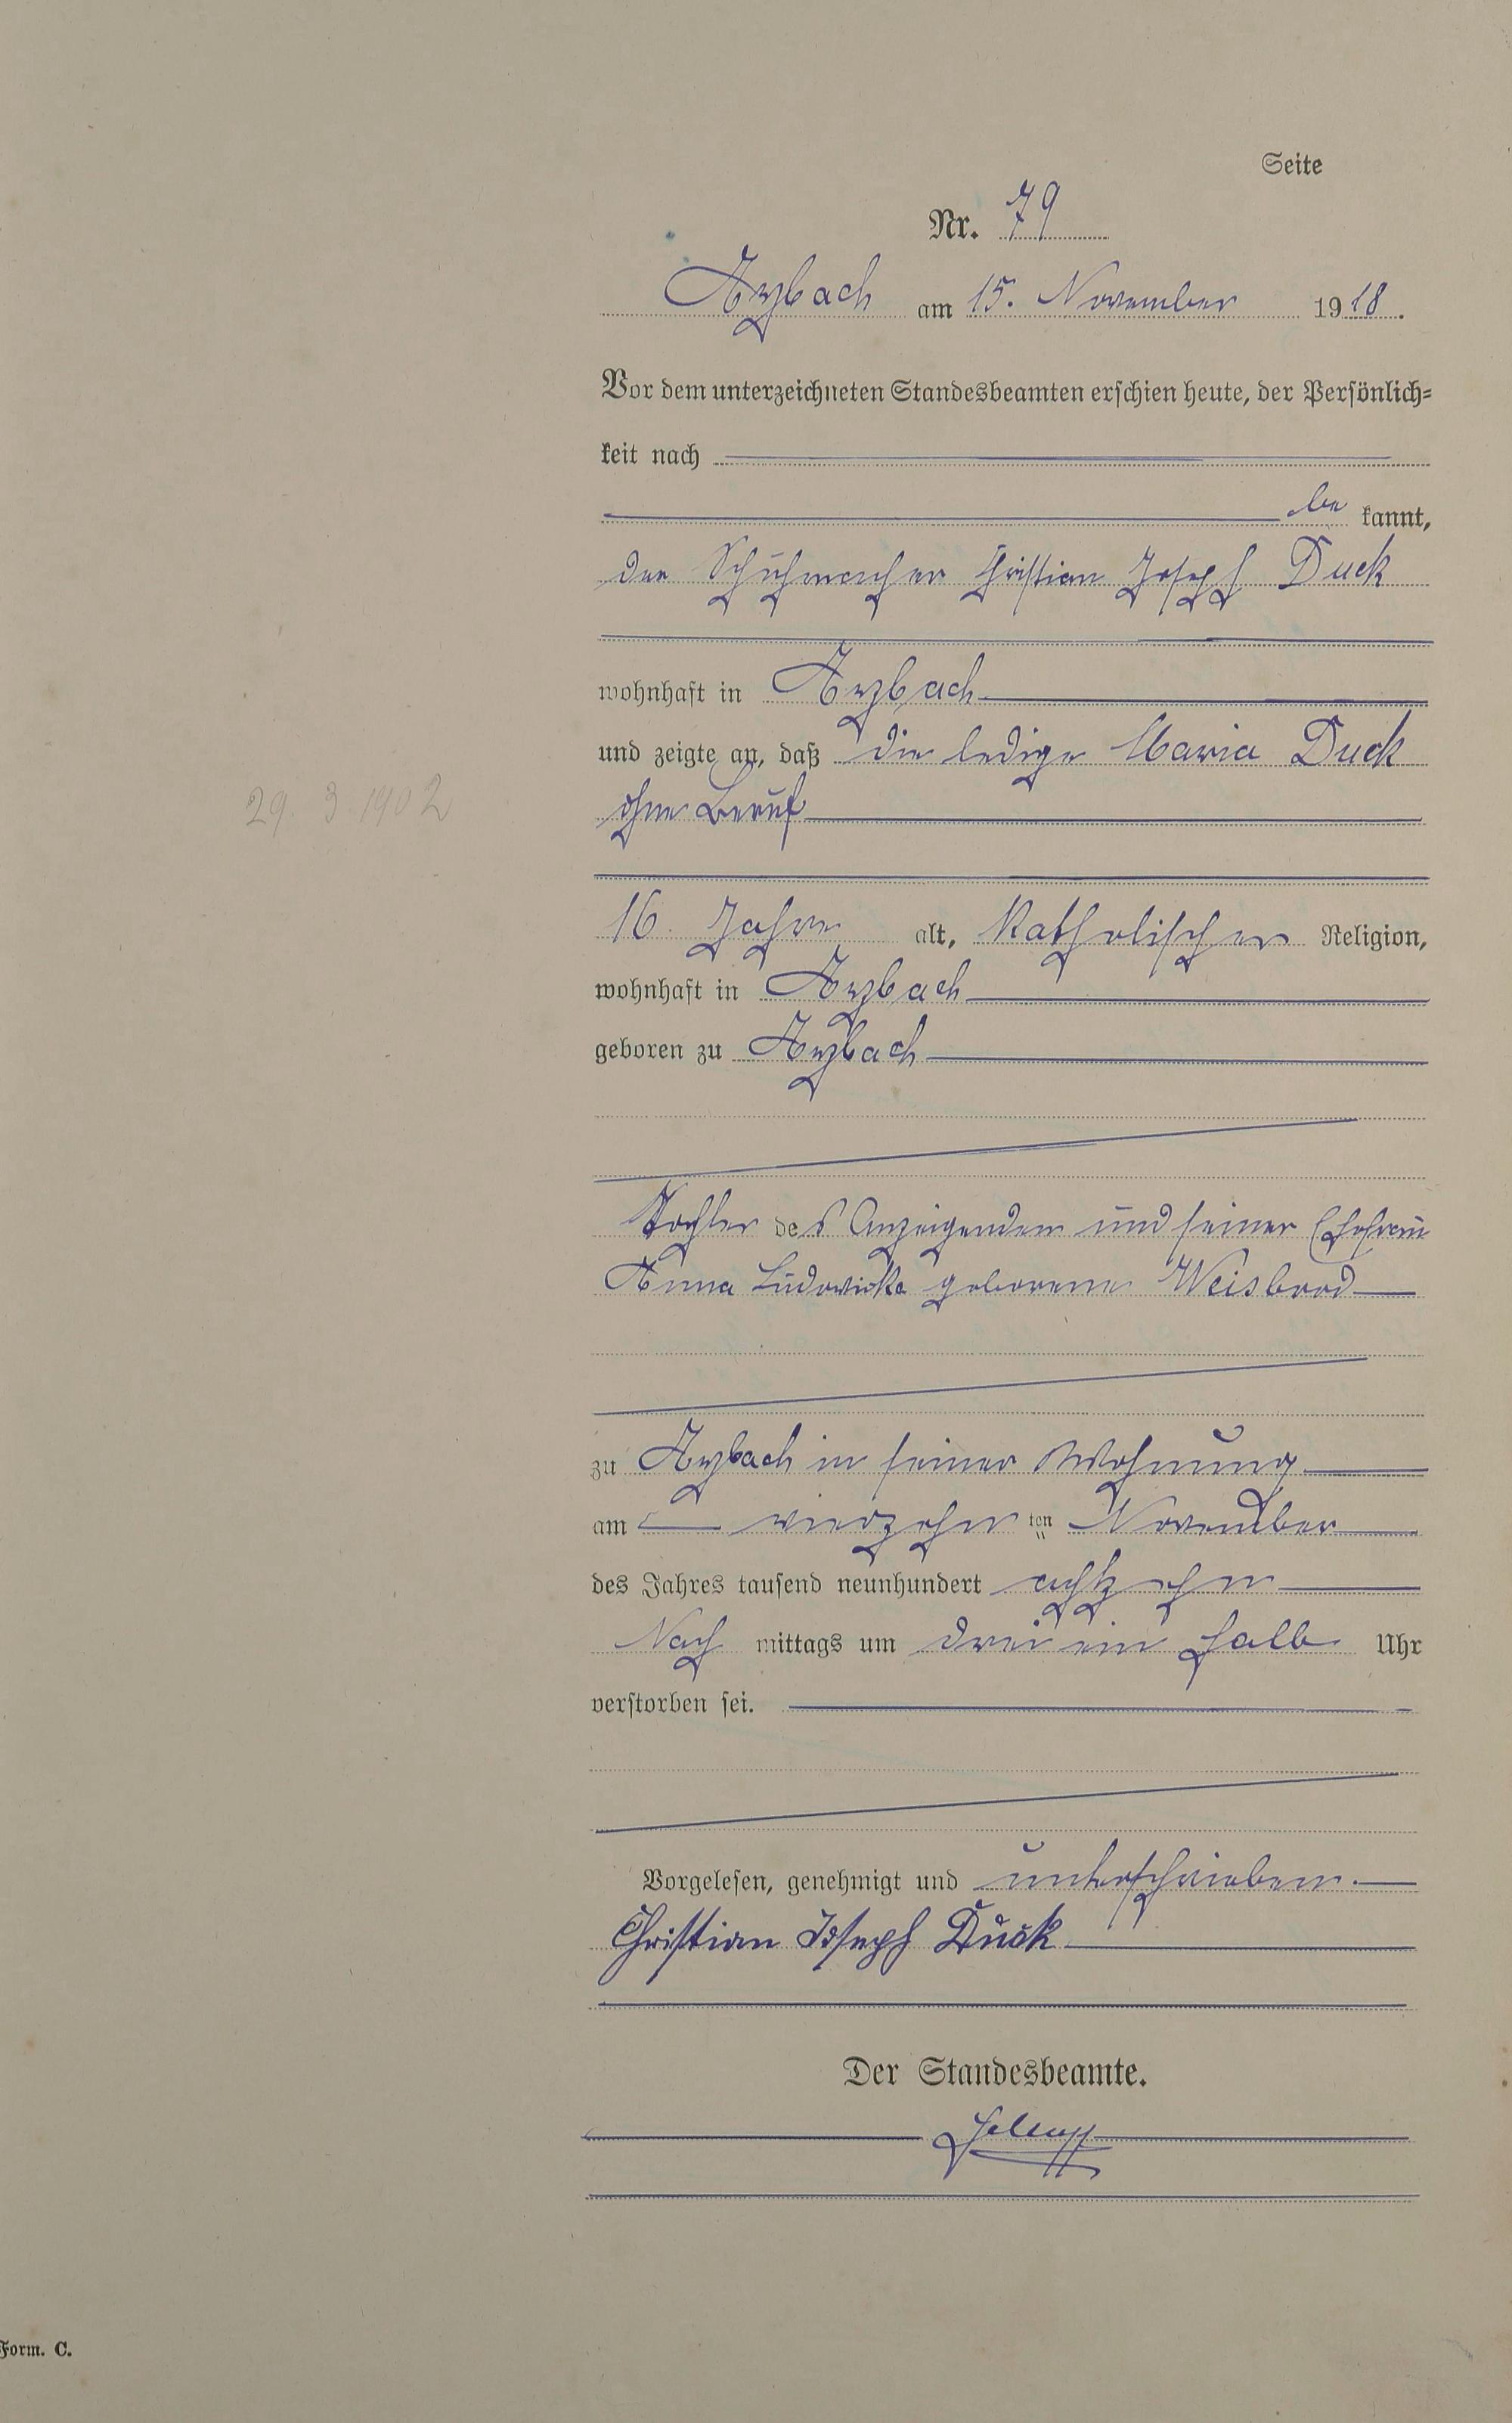 Seite
Nr. 79
Arzbach am 15. November 1918.
Vor dem unterzeichneten Standesbeamten erschien heute, der Persönlich-
keit nach
be kannt,
der Schuhmacher Christian Joseph Duck
wohnhaft in Arzbach
und zeigte an, daß die ledige Maria Duck
29. 3. 1902
ohne Beruf
16 Jahre alt, katholischer Religion,
wohnhaft in Arzbach
geboren zu Arzbach
Tochter des Anzeigenden und seiner Ehefrau
Anna Ludowika geborene Weisbrod
zu Arzbach in seiner Wohnung
am vierzehn ten November
des Jahres tausend neunhundert achtzehn
Nach mittags um drei ein halb Uhr
verstorben sei.
Vorgelesen, genehmigt und unterschrieben.
Christian Joseph Duck
Der Standesbeamte.
Form. C.